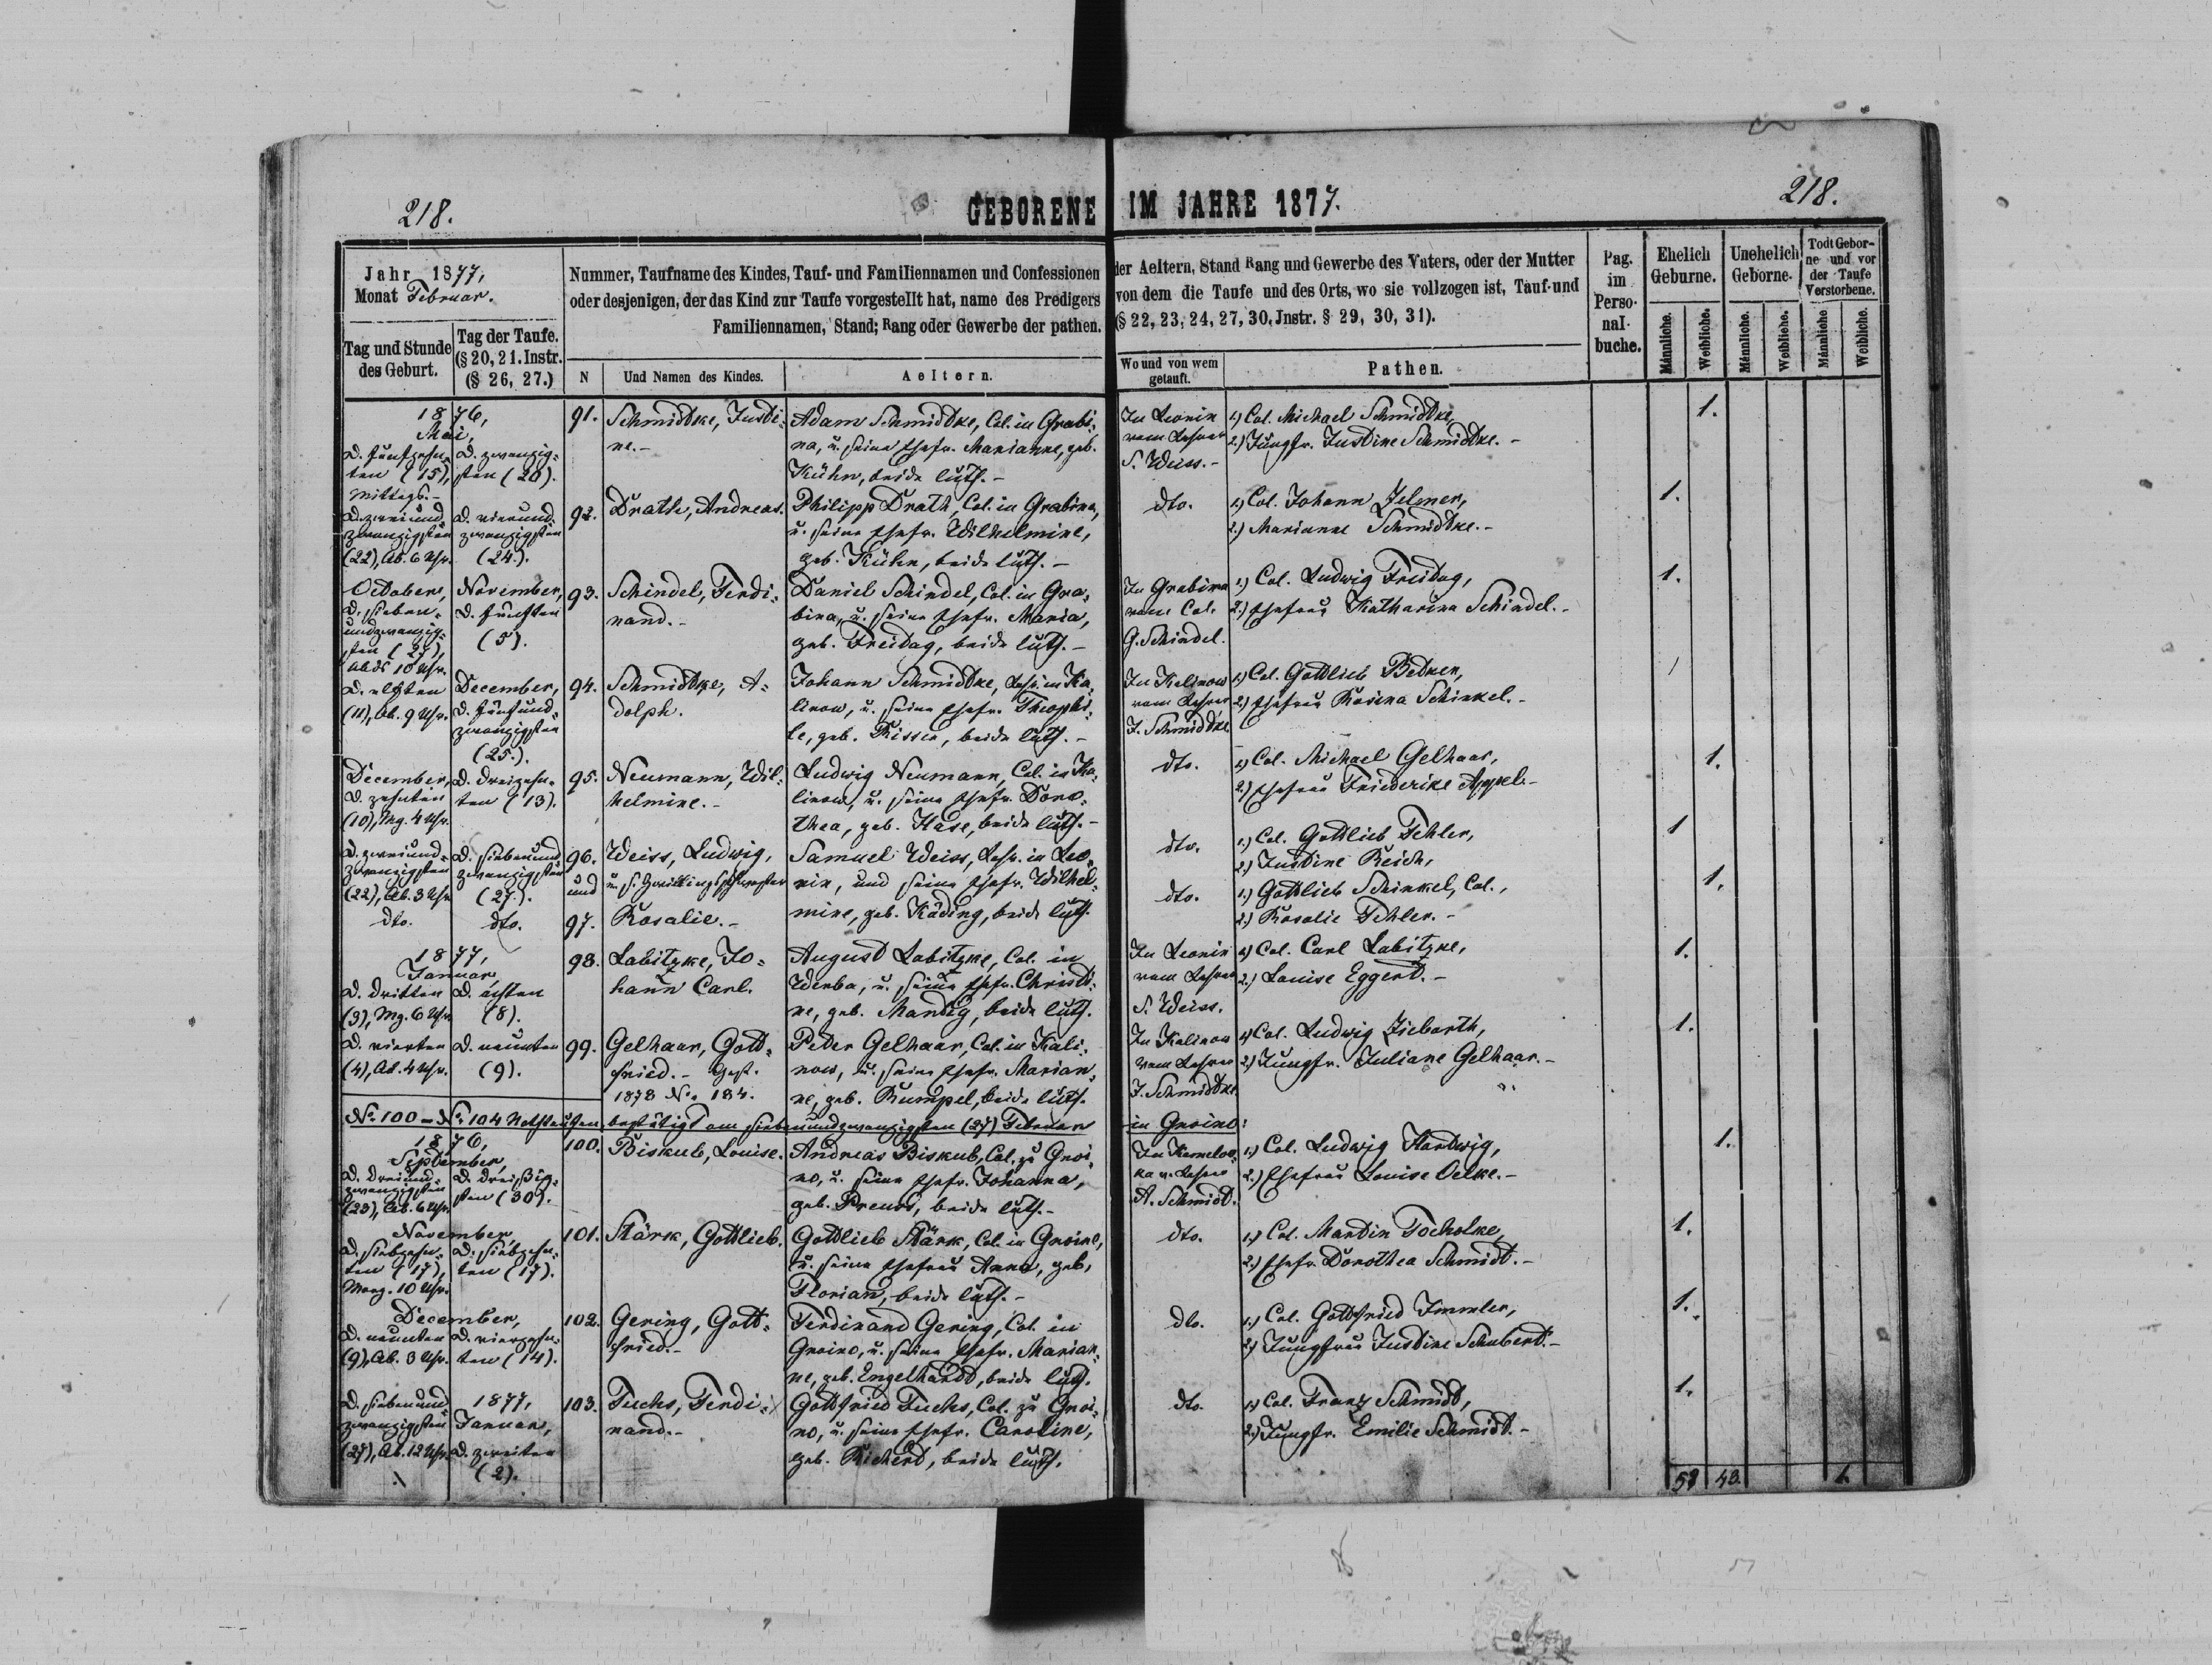 218.
GEBORENE IM JAHRE 1877.
218.
Jahr 1877,
Monat Februar.
Tag und Stunde
des Geburt.
Tag der Taufe.
(§ 20, 21. Instr.
(§ 26, 27.)
Nummer, Taufname des Kindes, Tauf- und Familiennamen und Confessionen
oder desjenigen, der das Kind zur Taufe vorgestellt hat, name des Predigers
Familiennamen, Stand; Rang oder Gewerbe der pathen.
N
Und Namen des Kindes.
Aeltern.
der Aeltern, Stand Rang und Gewerbe des Vaters, oder der Mutter
von dem die Taufe und des Orts, wo sie vollzogen ist, Tauf-und
(§ 22, 23, 24, 27, 30, Jnstr. § 29, 30, 31).
Wo und von wem
getauft.
Pathen.
Pag.
im
Perso-
nal-
buche.
Ehelich
Geburne.
Unehelich
Geborne.
Todt Gebor-
ne und vor
der Taufe
Verstorbene.
Männliche.
Weibliche.
Männliche.
Weibliche.
Männliche
Weibliche.
1876,
Mai,
D. fünfzehn-
ten (15),
Mittags.-
D. zwanzig-
sten (20).
91.
Schmidtke, Justi-
ne.-
Adam Schmidtke, Col. in Grabi-
na, u. seine Ehefr. Marianne, geb.
Kühn, beide luth.-
In Leonin
vom Lehrer
S. Weiss.-
1.) Col. Michael Schmidtke,
2.) Jungfr. Justine Schmidtke.-
1.
D. zweiund-
zwanzigsten
(22), Ab. 6 Uhr.
D. vierund-
zwanzigsten
(24.).
92.
Drath, Andreas.
Philipp Drath, Col. in Grabina,
u. seine Ehefr. Wilhelmine,
geb. Kühn, beide luth.-
dto.
1.) Col. Johann Zelmer,
2.) Marianne Schmidtke.-
1.
October,
D. sieben-
undzwanzig-
sten (27),
Abds 10 Uhr.
November,
D. fünften
(5).
93.
Schindel, Ferdi-
nand.-
Daniel Schindel, Col. in Gra-
bina, u. seine Ehefr. Maria,
geb. Freidag, beide luth.-
In Grabina
vom Col.
G. Schindel.
1.) Col. Ludwig Freidag,
2.) Ehefrau Katharina Schindel.-
1.
D. elften
(11), Ab. 9 Uhr.
December,
D. fünfund-
zwanzigsten
(25.).
94.
Schmidtke, A-
dolph.
Johann Schmidtke, Lehr. in Ka-
linow, u. seine Ehefr. Theophi-
le, geb. Risser, beide luth.-
In Kalinow
vom Lehrer
J. Schmidtke
1.) Col. Gottlieb Betker,
2.) Ehefrau Rosina Schinkel.-
1
December,
D. zehnten
(10), Mg. 4 Uhr.
D. dreizehn-
ten (13).
95.
Neumann, Wil-
helmine.-
Ludwig Neumann, Col. in Ka-
linow, u. seine Ehefr. Doro-
thea, geb. Hase, beide luth.-
dto.
1.) Col. Michael Gelhaar,
2.) Ehefrau Friederike Appel.-
1.
D. zweiund-
zwanzigsten
(22), Ab. 3 Uhr
dto.
D. siebenund-
zwanzigsten
(27.).
dto.
96.
und
97.
Weiss, Ludwig,
u. s. Zwillingsschwester
Rosalie.-
Samuel Weiss, Lehr. in Leo-
nin, und seine Ehefr. Wilhel-
mine, geb. Käding, beide luth.
dto.
1.) Col. Gottlieb Fehler,
2.) Justine Reich,
1
dto.
1.) Gottlieb Schinkel, Col.,
2.) Rosalie Fehler.-
1.
1877,
Januar,
D. dritten
(3), Mg. 6 Uhr.
D. achten
(8).
98.
Labitzke, Jo-
hann Carl.
August Labitzke, Col. in
Werba, u. seine Ehefr. Christi-
ne, geb. Mandeg, beide luth.
In Leonin
vom Lehrer
S. Weiss.
1.) Col. Carl Labitzke,
2.) Louise Eggert.-
1.
D. vierten
(4), Ab. 4 Uhr.
D. neunten
(9).
99.
Gelhaar, Gott-
fried.- Gest.
1878 No. 184.
Peter Gelhaar, Col. in Kali-
now, u. seine Ehefr. Marian-
ne, geb. Rumpel, beide luth.
In Kalinow
vom Lehrer
J. Schmidtke.
1.) Col. Ludwig Ziebarth,
2.) Jungfr. Juliane Gelhaar.-
1.
No 100 - No 104 Nothtaufen bestätigt am siebenundzwanzigsten (27) Februar in Gnoino:
1876,
September,
D. dreiund-
zwanzigsten
(23), Ab. 6 Uhr.
D. dreißig-
sten (30).
100.
Biskub, Louise.
Andreas Biskub, Col. zu Gnoi-
no, u. seine Ehefr. Johanna,
geb. Preuss, beide luth.-
ka v. Lehrer
A. Schmidt.
1.) Col. Ludwig Hartwig,
2.) Ehefrau Louise Oelke.-
1.
November,
D. siebzehn-
ten (17),
Morg. 10 Uhr.
D. siebzehn-
ten (17).
101.
Stärk, Gottlieb.
Gottlieb Stärk, Col. in Gnoino,
u. seine Ehefrau Anna, geb.
Florian, beide luth.-
dto.
1.) Col. Martin Tocholke,
2.) Ehefr. Dorothea Schmidt.-
1.
December,
D. neunten
(9), Ab. 3 Uhr.
D. vierzehn-
ten (14).
102.
Gering, Gott-
fried.-
Ferdinand Gering, Col. in
Gnoino, u. seine Ehefr. Marian-
ne, geb. Engelhardt, beide luth.
dto.
1.) Col. Gottfried Immler,
2.) Jungfrau Justine Schubert.-
1.
D. siebenund-
zwanzigsten
(27), Ab. 12 Uhr.
1877,
Januar,
D. zweiten
(2).
103.
Fuchs, Ferdi-
nand.-
Gottfried Fuchs, Col. zu Gnoi-
no, u. seine Ehefr. Caroline,
geb. Richert, beide luth.
dto.
1.) Col. Franz Schmidt,
2.) Jungfr. Emilie Schmidt.-
1.
43.
1.